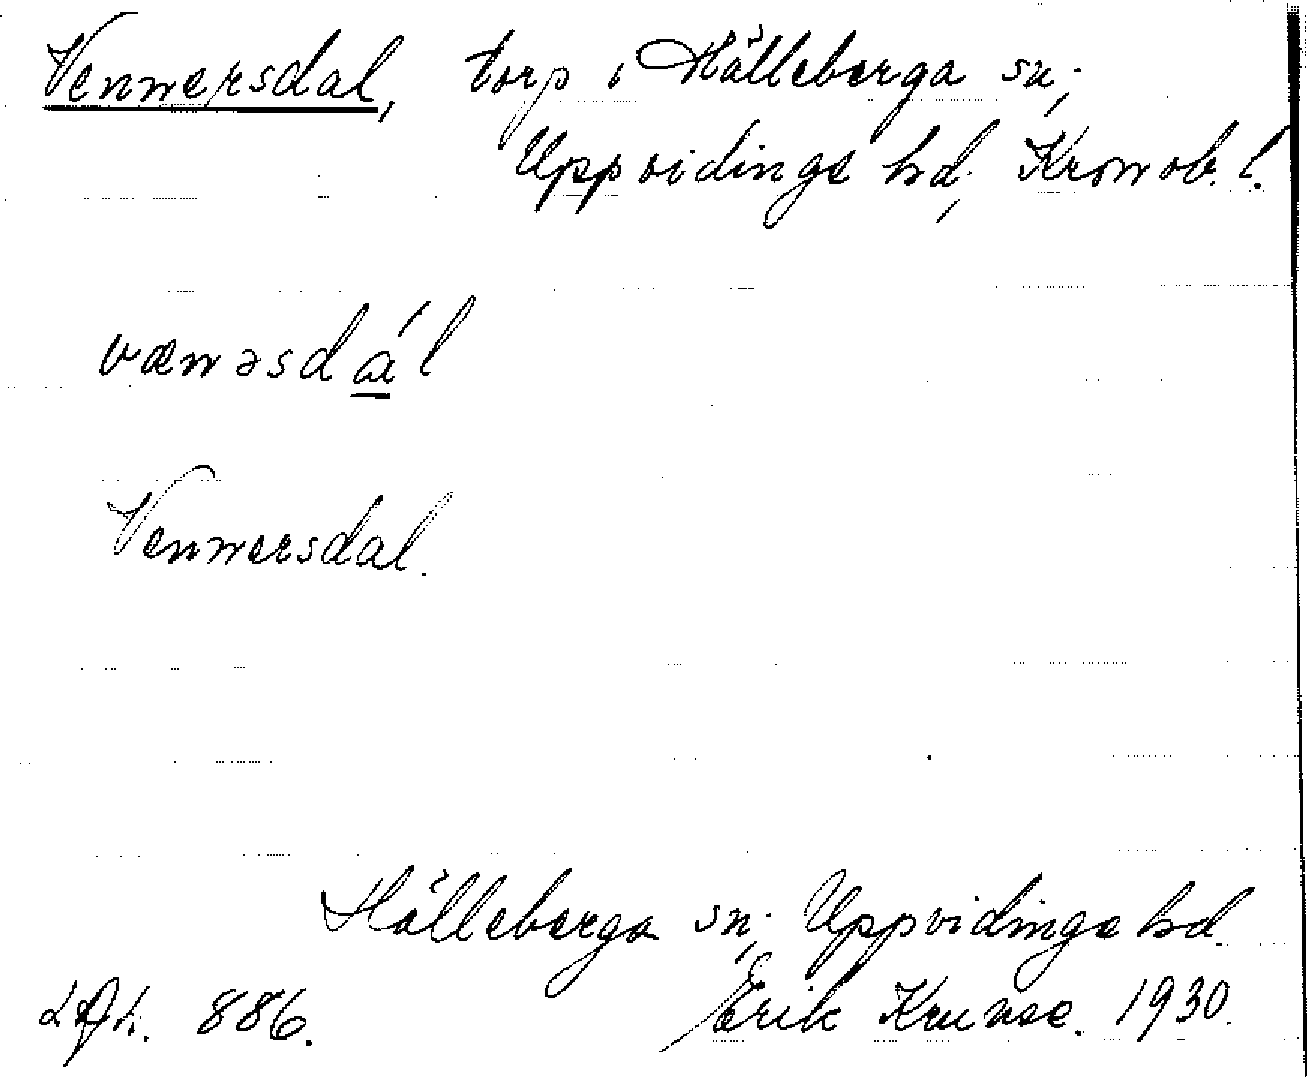 Vennersdal, torp i Hälleberga sn,
Uppvidinge hd, Kronob. l.
vænəsdál
Vennersdal.
Hälleberga sn, Uppvidinge hd.
886. Erik Kruuse. 1930.